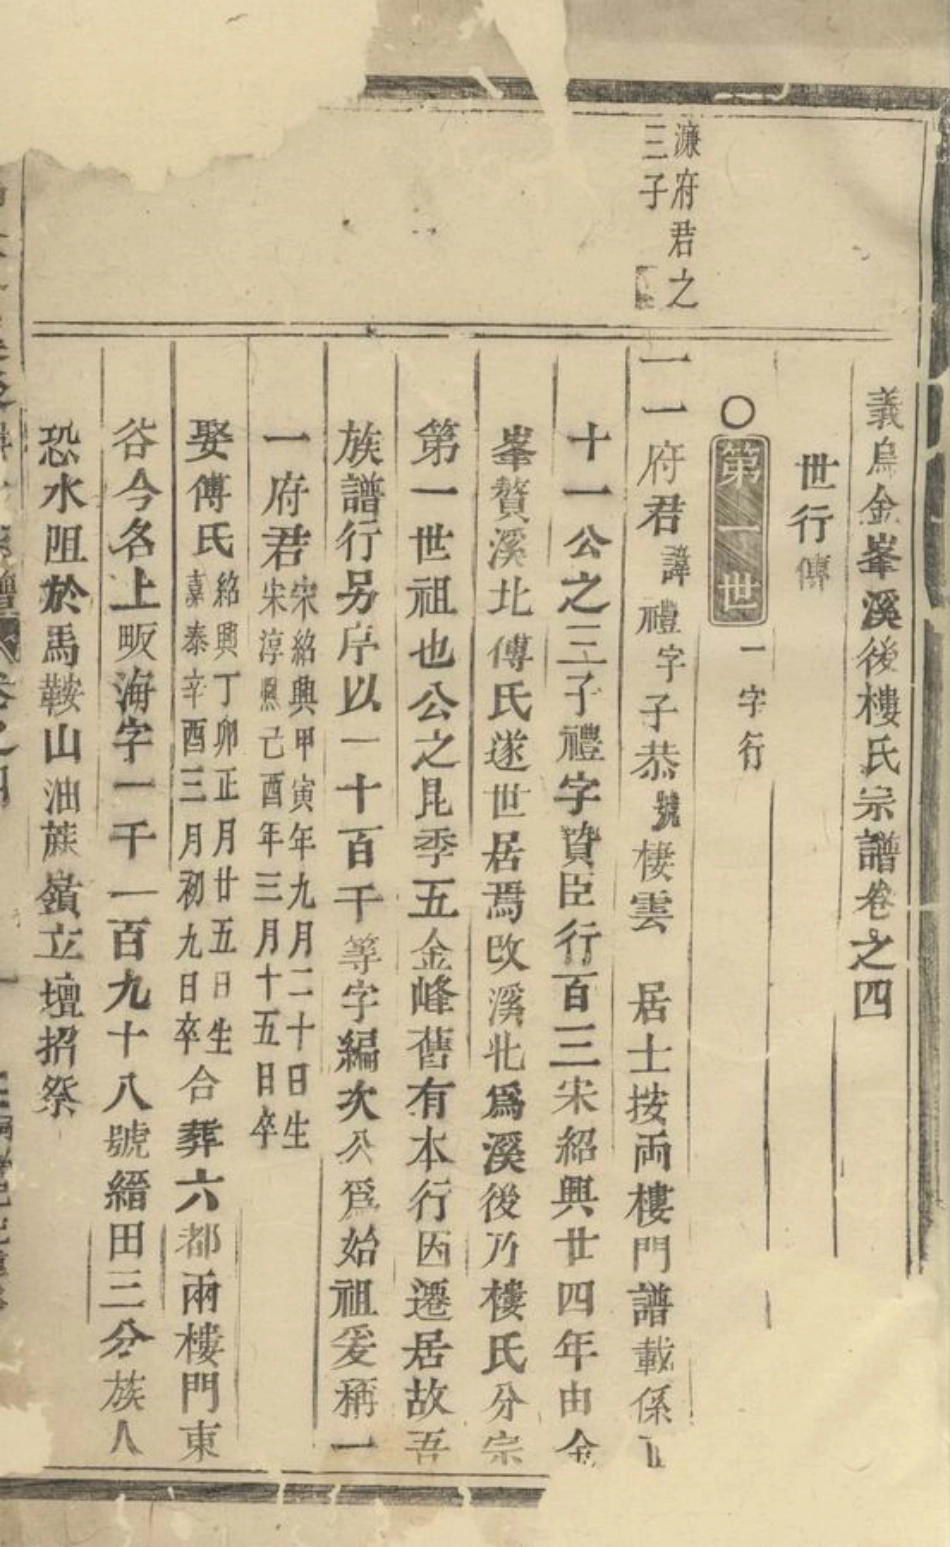 義烏金峯溪後樓氏宗譜卷之四
世行傳
〇第一世 一字行
濂府君之
三子
一一府君諱禮字子恭號棲雲 居士按両樓門譜載係
十一公之三子禮字資臣行百三宋紹興廿四年由金
峯贅溪北傅氏遂世居焉改溪北爲溪後乃樓氏分宗
第一世祖也公之昆季五金峰舊有本行因遷居故吾
族譜行另序以一十百千等字編次公爲始祖爰稱一
一府君宋紹興甲寅年九月二十日生
宋淳熙己酉年三月十五日卒
娶傅氏紹興丁卯正月廿五日生
嘉泰辛酉三月初九日卒合葬六都兩樓門東
谷今名上畈海字一千一百九十八號縉田三分族人
恐水阻於馬鞍山油蔴嶺立壇招祭